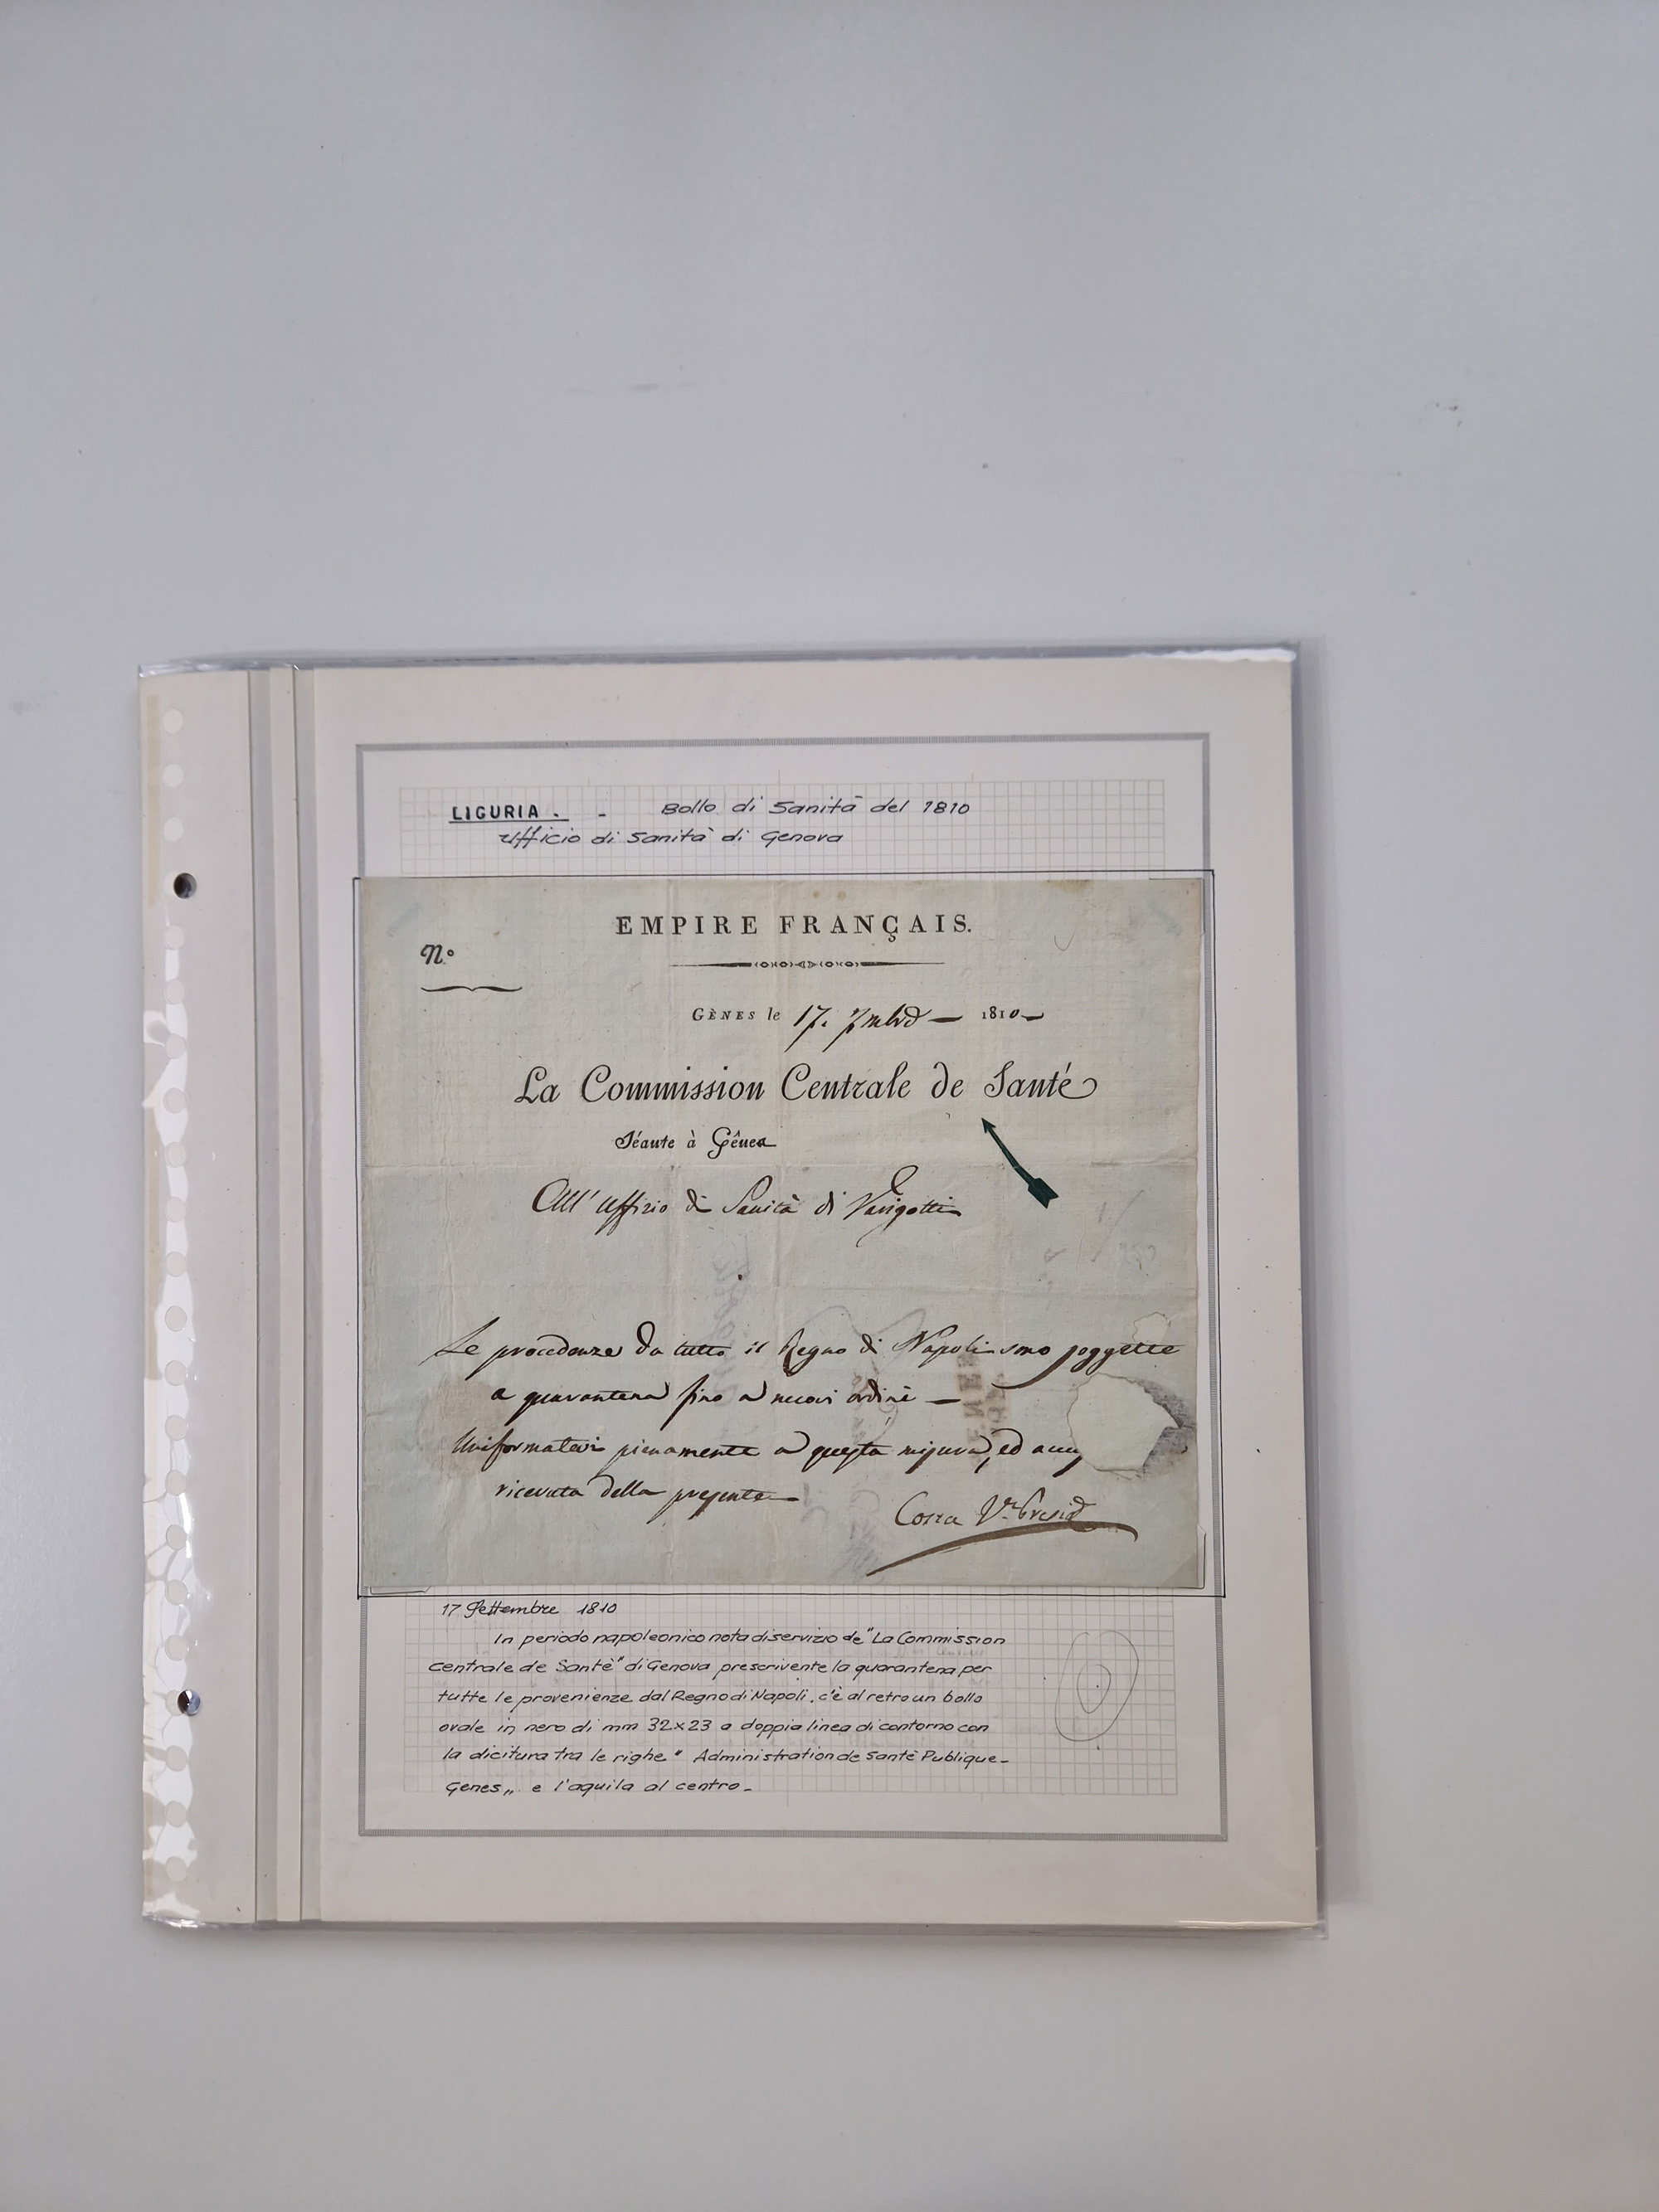 LIGURIA. - Bollo di Sanità del 1810
Ufficio di Sanità di Genova
EMPIRE FRANÇAIS.
N.º
GÈNES le 17. 7mbre 1810
La Commission Centrale de Santé
Séante à Gênes
All' Uffizio di Sanità di Varigotti
Le procedenze da tutto il Regno di Napoli sono soggette
a quarantena fino a nuovi ordini —
Uniformatevi pienamente a questa misura, ed accu
ricevuta della presente —
Vº Presid
17 Settembre 1810
In periodo napoleonico nota di servizio de "La Commission
centrale de Santè" di Genova prescrivente la quarantena per
tutte le provenienze dal Regno di Napoli. c'è al retro un bollo
ovale in nero di mm 32x23 a doppia linea di contorno con
la dicitura tra le righe " Administration de Santè Publique-
Genes,, e l'aquila al centro-